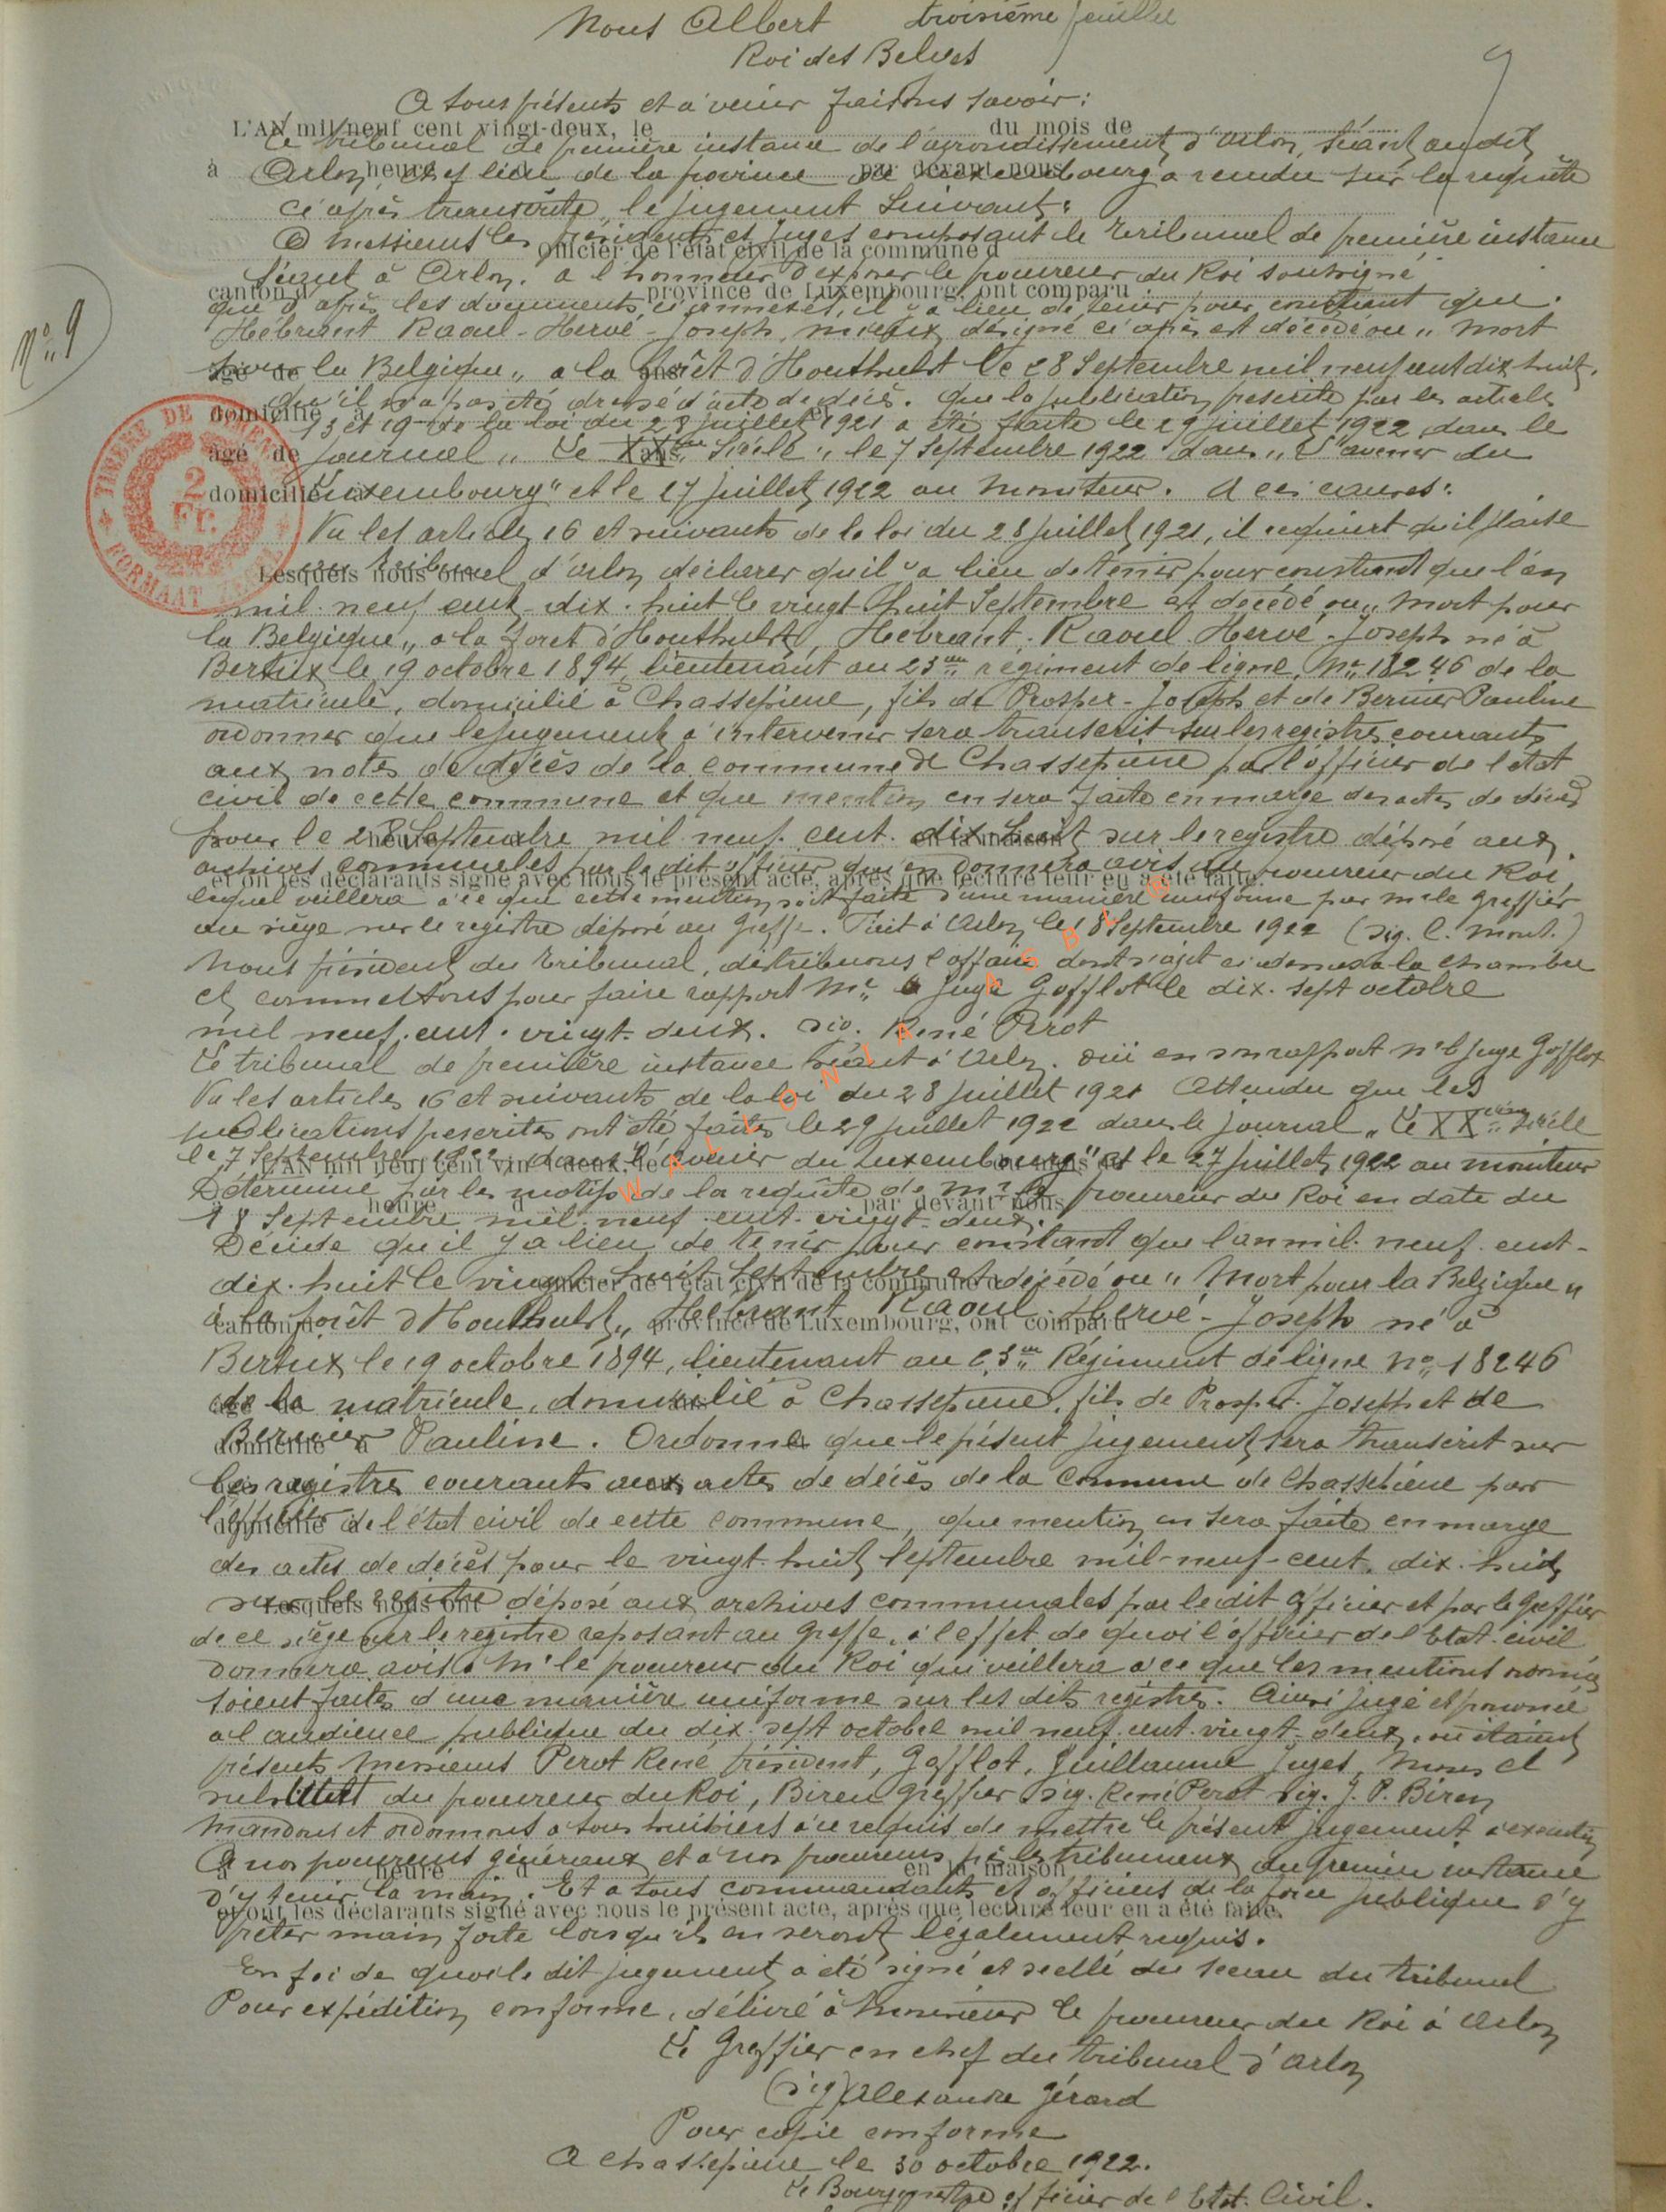 Nous Albert troisième feuillet
Roi des Belges
9
A tous présents et à venir faisons savoir :
L'AN mil neuf cent vingt-deux, le du mois de
Le tribunal de première instance de l'arrondissement d'Arlon, séant audit
à heure par devant nous
Arlon, chef lieu de la province de Luxembourg a rendu sur la requête
ci après transcrite, le jugement suivant :
A messieurs les présidents et juges composant le Tribunal de première instance
Officier de l'état civil de la commune d
séant à Arlon. a l'honneur d'exposer le procureur du Roi soussigné
canton d province de Luxembourg, ont comparu :
que d'après les documents ci annexés, il y a lieu de tenir pour constant que
N° 9
Hébrant Raoul-Hervé-Joseph, mieux désigné ci après est décédé ou " mort
pour la Belgique " a la forêt d'Houthulst le 28 Septembre mil neuf cent dix huit,
âgé de ans
qu'il n'a pas été dressé d'acte de décès. que la publication prescrite par les articles
domicilié à et
13 et 19 de la loi du 28 juillet 1921 a été faite le 29 juillet 1922 dans le
TIMBRE DE DIMENSION
2 Fr.
FORMAAT
âgé de ans
journal " Le XXme Siècle " le 7 Septembre 1922 dans " L'avenir du
domicilié à
Luxembourg " et le 27 juillet 1922 au moniteur. A ces causes :
Vu les articles 16 et suivants de la loi du 28 juillet 1921, il requiert qu'il plaise
Lesquels nous ont
au tribunal d'arlon déclarer qu'il y a lieu de tenir pour constant que l'an
mil neuf cent dix huit le vingt huit Septembre est décédé ou " mort pour
la Belgique " a la foret d'Houthulst, Hébrant, Raoul Hervé-Joseph né à
Bertrix le 19 octobre 1894, lieutenant au 23me régiment de ligne, N° 18246 de la
matricule, domicilié à Chassepierre, fils de Prosper-Joseph et de Bernier Pauline
ordonner que le jugement à intervenir sera transcrit sur les registres courants
aux notes de décès de la commune de Chassepierre par l'officier de l'état
civil de cette commune et que mention en sera faite en marge des actes de décès
pour le 28 Septembre mil neuf cent dix huit sur le registre déposé aux
heure en la maison
archives communales par le dit officier qui en donnera avis au procureur du Roi,
et ont les déclarants signé avec nous le présent acte, après que lecture leur en a été faite.
lequel veillera à ce que cette mention soit faite d'une manière uniforme par mr le greffier
du siège sur le registre déposé au greffe. Fait à Arlon le 18 Septembre 1922 (sig. C. Mont.)
Nous président du tribunal, distribuons l'affaire dont s'agit ci dessus a la chambre
et commettons pour faire rapport Mr le juge Gofflot le dix-sept octobre
mil neuf cent vingt-deux. sig. René Perot
Le tribunal de première instance séant à Arlon. ouï en son rapport mr le juge Gofflot
Vu les articles 16 et suivants de la loi du 28 juillet 1921 Attendu que les
publications prescrites ont été faites le 29 juillet 1922 dans le journal " Le XXme Siècle
le 7 Septembre 1922 dans l'avenir du Luxembourg " et le 27 juillet 1922 au moniteur
L'AN mil neuf cent vingt-deux, le du mois de
Déterminé par les motifs de la requête de Mr le procureur du Roi en date du
heure d par devant nous
18 Septembre mil neuf cent vingt-deux.
Décide qu'il y a lieu de tenir pour constant que l'an mil neuf cent-
dix-huit le vingt huit Septembre est décédé ou " Mort pour la Belgique "
Officier de l'état civil de la commune d
à la forêt d'Houthulst, Hébrant Raoul-Hervé-Joseph né à
canton d province de Luxembourg, ont comparu
Bertrix le 19 octobre 1894, lieutenant au 23me Régiment de ligne N° 18246
de la matricule, domicilié à Chassepierre, fils de Prosper-Joseph et de
âgé de ans
Bernier Pauline. Ordonne que le présent jugement sera transcrit sur
domicilié à
les registres courants aux actes de décès de la commune de Chassepierre par
l'officier de l'état civil de cette commune, que mention en sera faite en marge
domicilié à
des actes de décès pour le vingt-huit septembre mil-neuf-cent-dix-huit
sur le registre déposé aux archives communales par ledit officier et par le greffier
Lesquels nous ont
de ce siège sur le registre reposant au greffe, à l'effet de quoi l'officier de l'Etat-civil
donnera avis à Mr le procureur du Roi qui veillera à ce que les mentions
soient faites d'une manière uniforme sur les dits registres. Ainsi jugé et prononcé
a l'audience publique du dix-sept octobre mil neuf cent vingt-deux, où étaient
présents messieurs Perot René président, Gofflot, Guillaume juges,
substitut du procureur du Roi, Biren greffier sig. René Perot sig. J. P. Biren
Mandons et ordonnons a tous huissiers à ce requis de mettre le présent jugement à exécution
A nos procureurs généraux et à nos procureurs près les tribunaux de première instance
à heure d en la maison
d'y tenir la main. Et a tous commandants et officiers de la force publique d'y
et ont les déclarants signé avec nous le présent acte, après que lecture leur en a été faite.
prêter main forte lorsqu'ils en seront légalement requis.
En foi de quoi le dit jugement a été signé et scellé du sceau du tribunal
Pour expédition conforme, délivré à Monsieur le procureur du Roi à Arlon
Le Greffier en chef du tribunal d'arlon
(sig) Alexandre Gérard
Pour copie conforme
A chassepierre le 30 octobre 1922.
Le Bourgmestre officier de l'Etat Civil.
WALLONIA ASBL ®